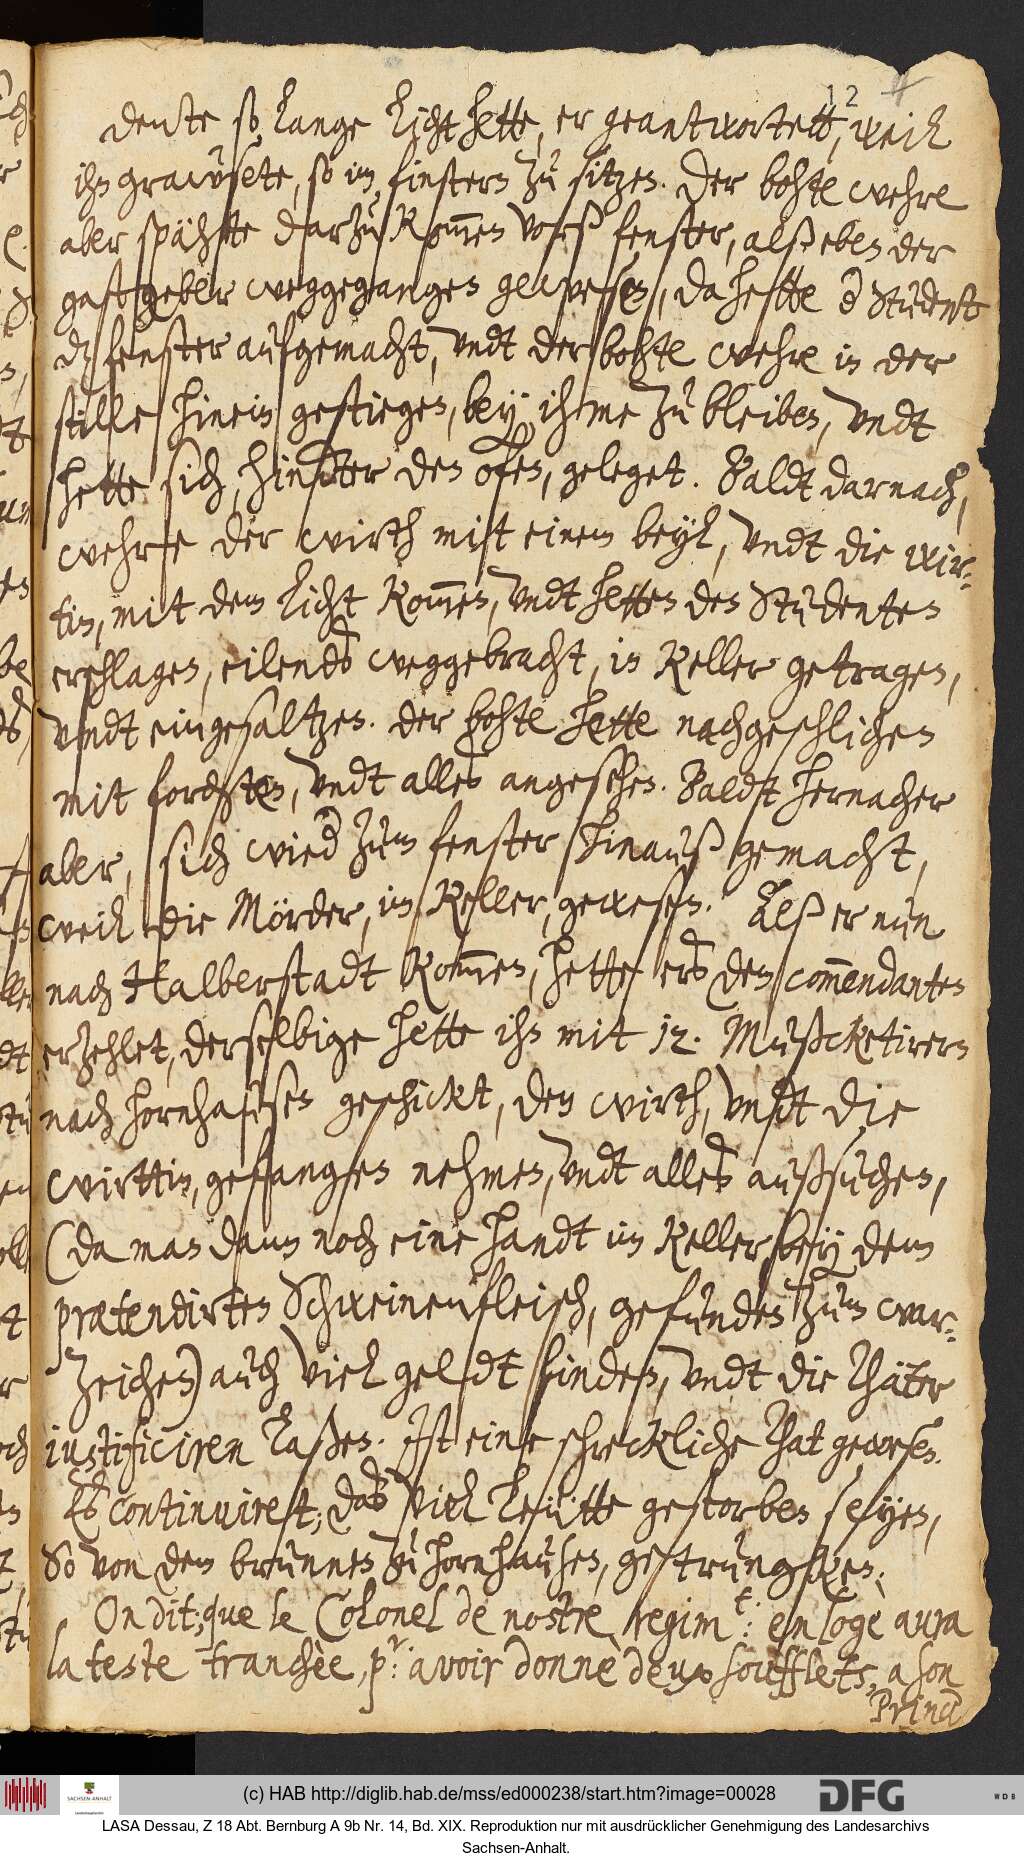 12
dente so lange licht hette, er geantwortett, weil
ihn grawsete, so im finstern zu sitzen. Der bohte wehre
aber spähte darzu kommen vorß fenster, alß eben der
gastgeber weggegangen gewesen, da hette d Student
dz fenster aufgemacht, undt der bohte wehre in der
stille hinein gestiegen, bey ihme zu bleiben, undt
hette sich, hinder den ofen, geleget. Baldt darnach,
wehre der wirth mit einem beyl, undt die wir-
tin, mit dem licht kommen, undt hetten den Studenten
erschlagen, eilends weggebracht, in Keller getragen,
undt eingesaltzen. Der bohte hette nachgeschlichen
mit forchten, undt alles angesehen. Baldt hernacher
aber, sich wied zum fenster hinauß gemacht,
weil die Mörder, im Keller, gewesen. Alß er nun
nach Halberstadt kommen, hette ers dem commendanten
erzehlet, derselbige hette ihn mit 12. Mußcketirern
nach Hornhausen geschickt, den wirth, undt die
wirttin, gefangen nehmen, undt alles außsuchen,
(da man dann noch eine handt im Keller, bey dem
prætendirten Schweinenfleisch, gefunden zum war-
zeichen) auch viel geldt finden, undt die Thäter
iustificiren laßen. Ist eine schreckliche That gewesen.
Es continuiret; das viel leütte gestorben seyen,
So von dem brunnen zu Hornhausen, getruncken.
On dit; que le Colonel de nostre regimt: en loge aura
la teste tranchèe, pr: avoir donnè deux soufflets, a son
Princ
(c) HAB http://diglib.hab.de/mss/ed000238/start.htm?image=00028
SACHSEN-ANHALT
DFG
WDB
LASA Dessau, Z 18 Abt. Bernburg A 9b Nr. 14, Bd. XIX. Reproduktion nur mit ausdrücklicher Genehmigung des Landesarchivs
Sachsen-Anhalt.